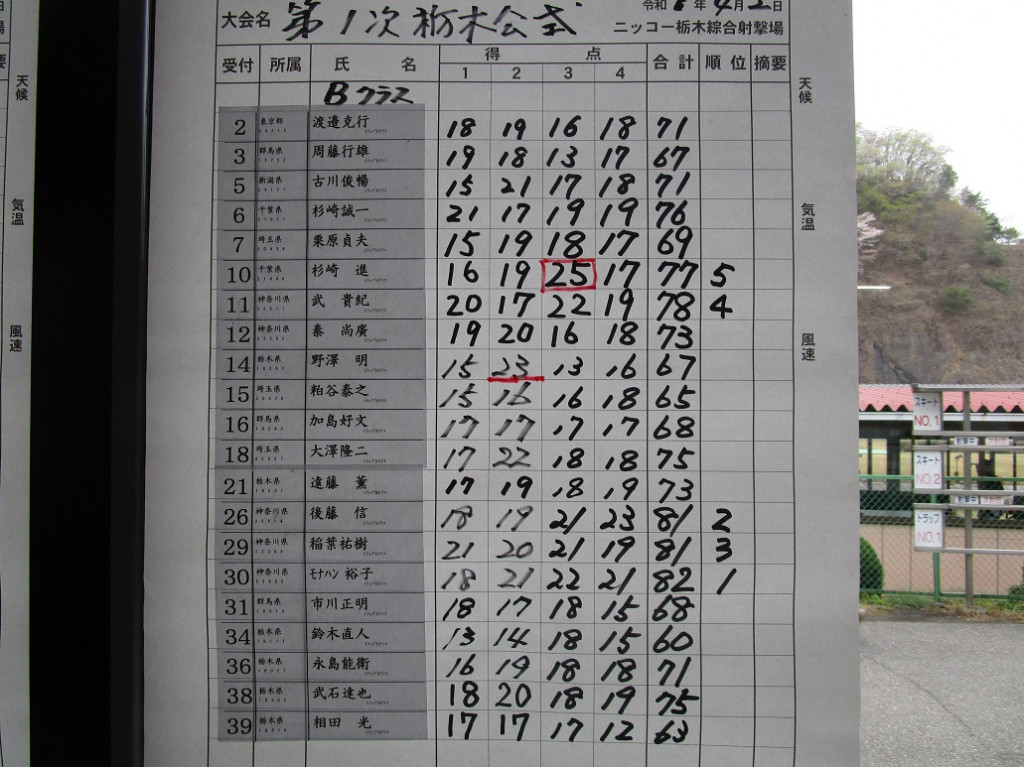 大会名 第1次栃木公式 令和6年4月2日
ニッコー栃木綜合射撃場
受付 所属 氏 名 得 点 合計 順位 摘要
1 2 3 4
Bクラス
2 東京都 渡邉克行 18 19 16 18 71
3 群馬県 周藤行雄 19 18 13 17 67
5 新潟県 古川俊暢 15 21 17 18 71
6 千葉県 杉崎誠一 21 17 19 19 76
7 埼玉県 栗原貞夫 15 19 18 17 69
10 千葉県 杉崎 進 16 19 25 17 77 5
11 神奈川県 武 貴紀 20 17 22 19 78 4
12 神奈川県 秦 尚廣 19 20 16 18 73
14 栃木県 野澤 明 15 23 13 16 67
15 埼玉県 粕谷泰之 15 16 16 18 65
16 群馬県 加島好文 17 17 17 17 68
18 埼玉県 大澤隆二 17 22 18 18 75
21 栃木県 遠藤 薫 17 19 18 19 73
26 神奈川県 後藤 信 18 19 21 23 81 2
29 神奈川県 稲葉祐樹 21 20 21 19 81 3
30 神奈川県 モナハン 裕子 18 21 22 21 82 1
31 群馬県 市川正明 18 17 18 15 68
34 栃木県 鈴木直人 13 14 18 15 60
36 栃木県 永島能衛 16 19 18 18 71
38 栃木県 武石達也 18 20 18 19 75
39 栃木県 相田 光 17 17 17 12 63
天候
気温
風速
天候
気温
風速
スキート
NO.1
スキート
NO.2
トラップ
NO.1